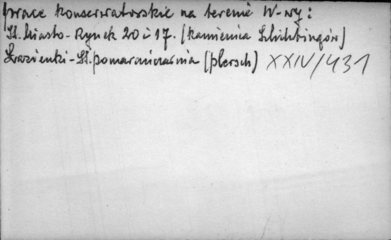 prace konserwatorskie na terenie W-wy:
St. Miasto - Rynek 20 i 17. (kamienica Schlichtingów)
Łazienki - St. pomarańczarnia (plersch) XXIV/431